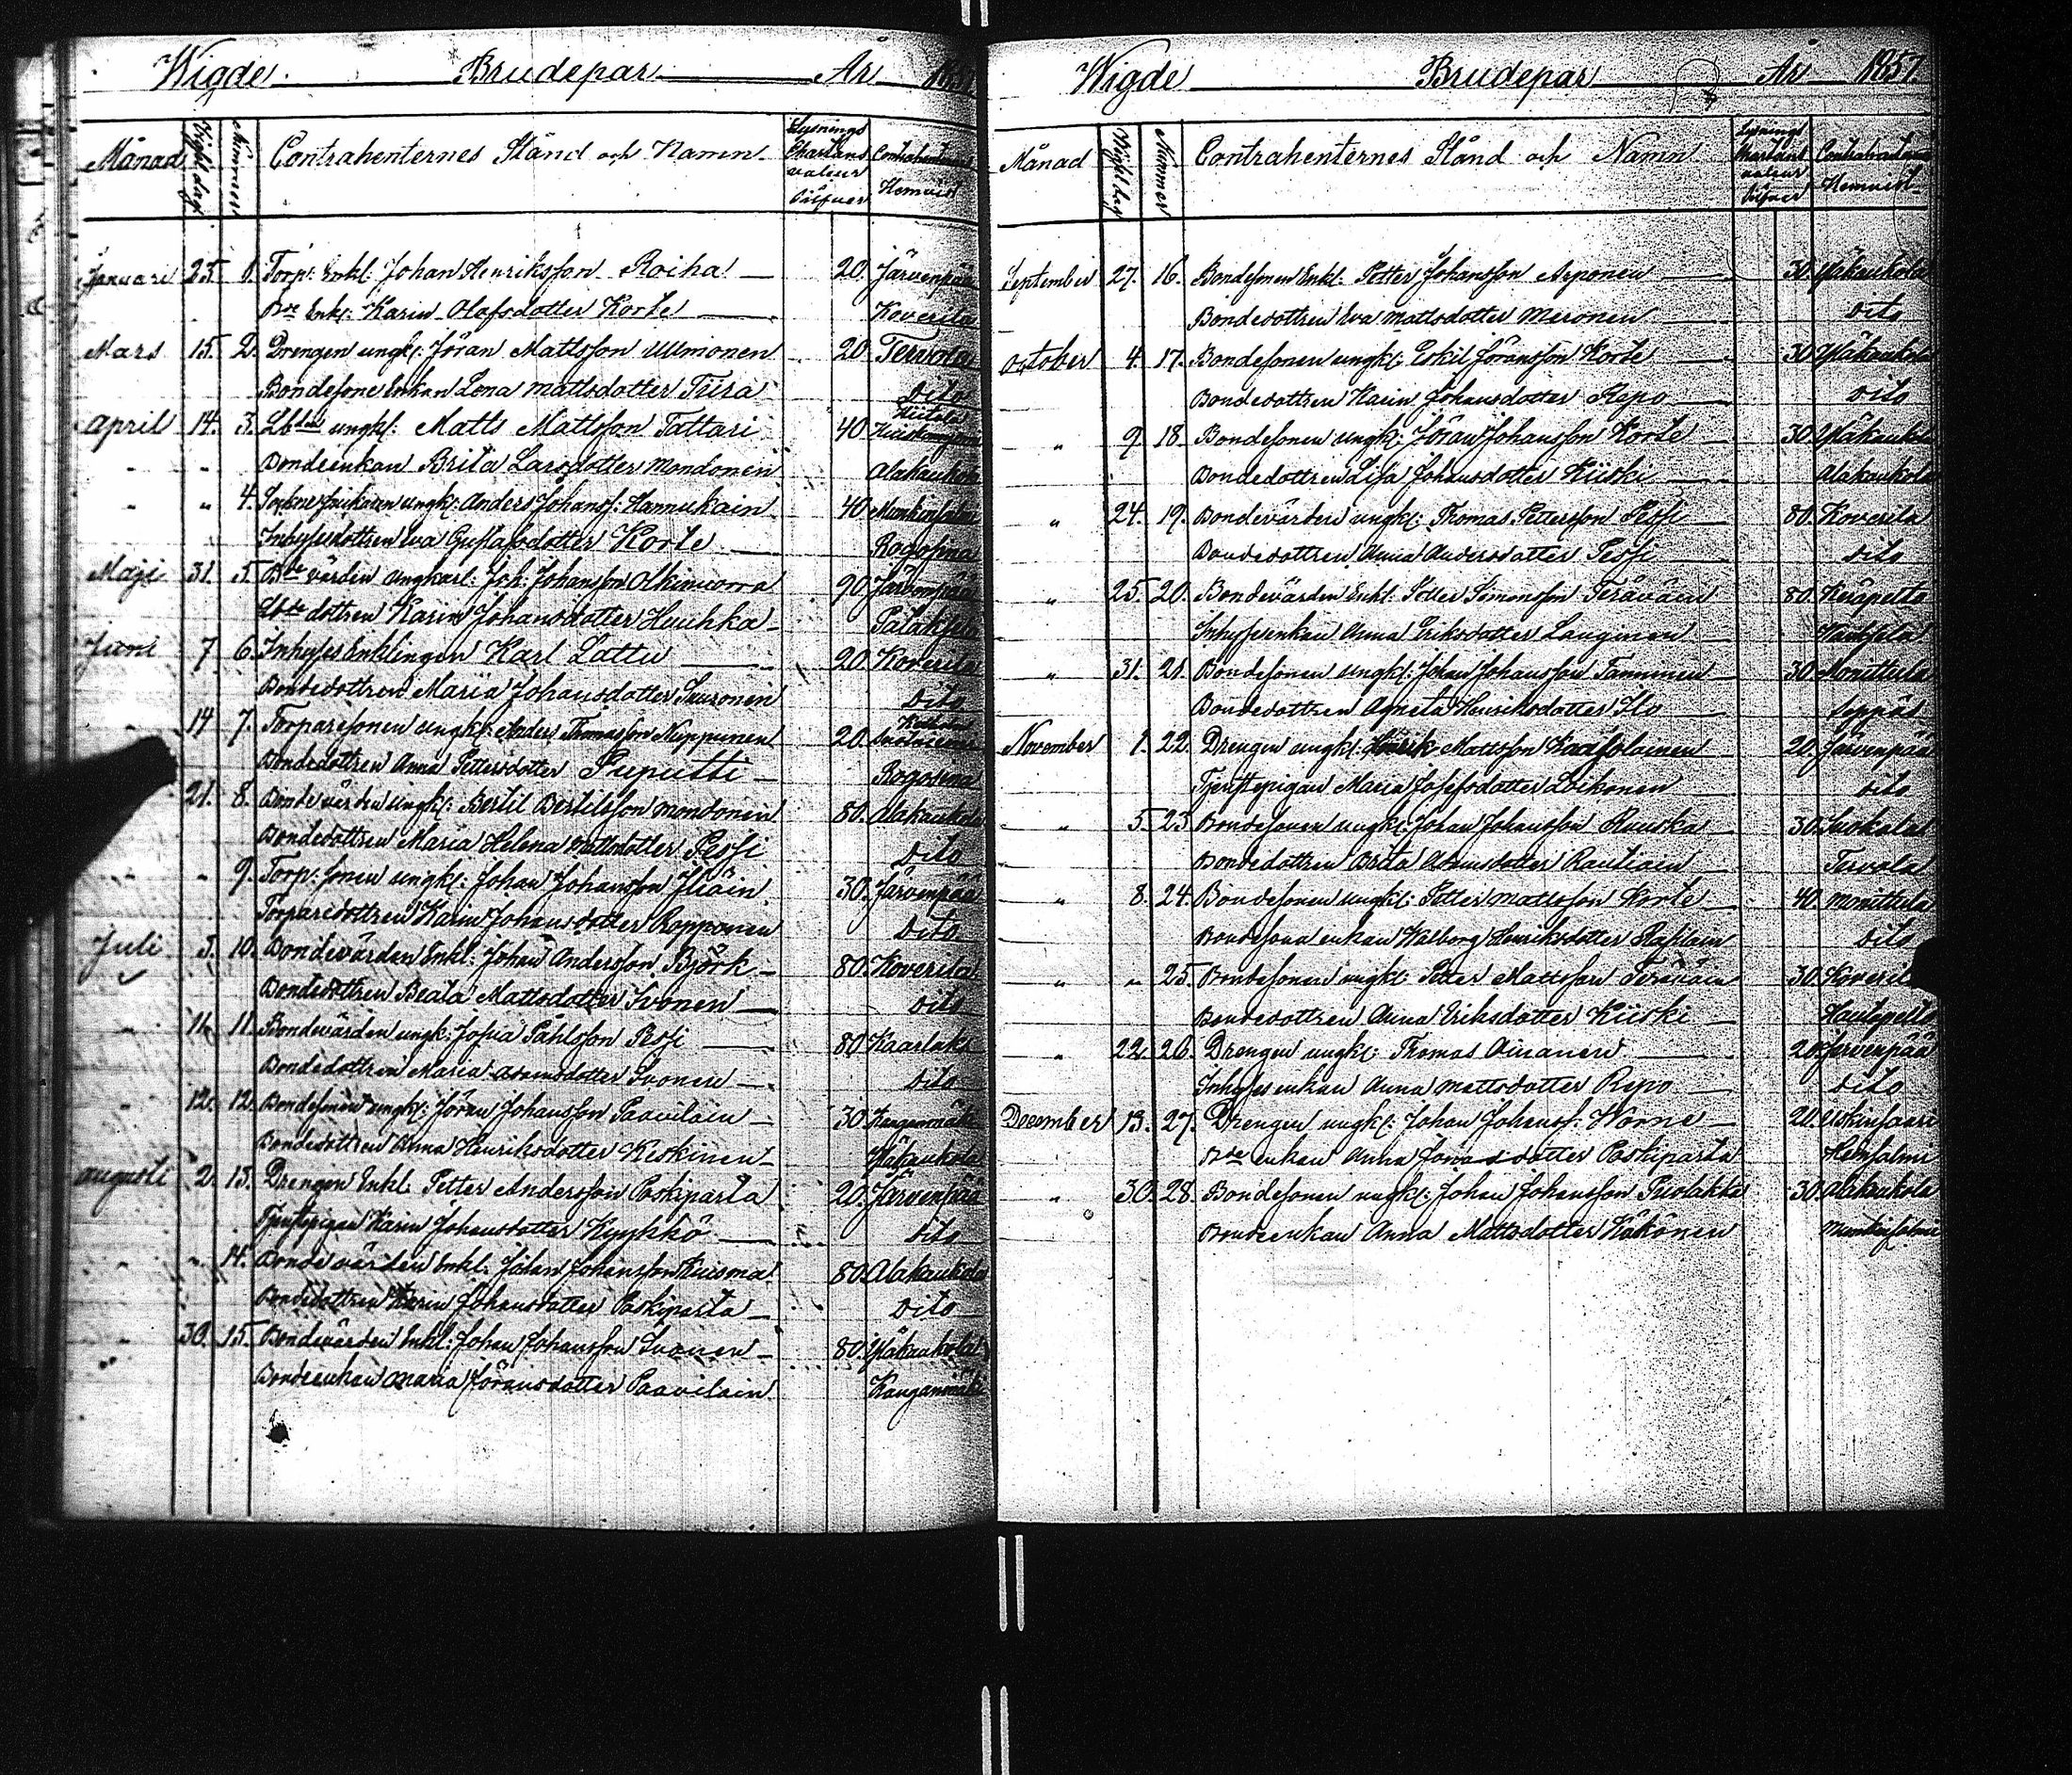 Wigde Brudepar År 1857
Månad Wigsl dag Nummer Contrahenternes Stånd och Namn Lysnings Chartans valeur Silfver Contrahenternes Hemvist
Januari 25. 1. Torp: Enkl: Johan Henriksson Roiha 20. Järvenpää
Bde Enk: Karin Olofsdotter Korte Koverila
Mars 15. 2. Drengen ungk: Jöran Mattsson Ulmonen 20. Tervola
Bondesone Enkan Lena Mattsdotter Tura dito
April 14. 3. ungk: Matts Mattsson Tattari 40
Bondeenkan Brita Larsdotter Mondonen Alakaukola
" " 4. ungk: Anders Johanss: Hannukain 40
Inhysesdottren Eva Gustafsdotter Korte Rogosina
Maji 31. 5. Bde värden ungkarl: Joh: Johansson Olkinuorra 90 Järvenpää
dottren Karin Johansdotter Huuhka
Juni 7 6. Inhyses Enklingen Karl Lattu 20. Koverila
Bondedottren Maria Johansdotter Suuronen dito
14 7. Torparesonen ungk: Anders Thomasson Nuppunen 20.
Bondedottren Anna Pettersdotter Puputti Rogosina
21. 8. Bondevärden ungk: Bertil Bertilsson Mondonen 80. Alakaukola
Bondedottren Maria Helena Mattsdotter Pessi dito
" 9. Torp: sonen ungk: Johan Johansson Iliäin 30. Järvenpää
Torparedottren Karin Johansdotter Ropponen dito
Juli 5. 10. Bondevärden Enkl: Johan Andersson Björk 80. Koverila
Bondedottren Beata Mattsdotter Ivonen dito
11. 11. Bondevärden ungk: Josua Påhlsson Pessi 80 Kaarlaks
Bondedottren Maria Adamsdotter Ivonen dito
12. 12. Bondesonen ungk: Jöran Johansson Paavilain 30. Kangasmäki
Bondedottren Anna Henriksdotter Keskinen Yläkaukola
Augusti 2. 13. Drengen Enkl: Petter Andersson Paskiparta 20. Järvenpää
Tjenstepigan Karin Johansdotter Kynkkö dito
" 14. Bondevärden Enkl: Johan Johansson Kuisma 80. Alakaukola
Bondedottren Karin Johansdotter Paskiparta dito
30. 15. Bondevärden Enkl: Johan Johansson Ivonen 80. Yläkaukola
Bondeenkan Maria Jöransdotter Paavilain Kangasmäki
Wigde Brudepar År 1857
Månad Wigsl dag Nummer Contrahenternes Stånd och Namn Lysnings Chartans valeur Silfver Contrahenternes Hemvist
September 27. 16. Bondesonen Enkl: Petter Johansson Asponen 30. Yläkaukola
Bondedottren Eva Mattsdotter Meronen dito
October 4. 17. Bondesonen ungk: Eskil Jöransson Korte 30 Yläkaukola
Bondedottren Karin Johansdotter Repo dito
" 9. 18. Bondesonen ungk: Jöran Johansson Korte 30. Yläkaukola
Bondedottren Lisa Johansdotter Kiiski Alakaukola
" 24. 19. Bondevärden ungk: Thomas Pettersson Pessi 80. Koverila
Bondedottren Anna Andersdotter Pessi dito
" 25. 20. Bondevärden Enkl: Petter Simonsson Teräväin 80.
Inhysesenkan Anna Eriksdotter Lauginen
" 31. 21. Bondesonen ungk: Johan Johansson Tamminen 30 Monittula
Bondedottren Agneta Henriksdotter Ilo
November 1. 22. Drengen ungk: Henrik Mattsson 20. Järvenpää
Tjenstepigan Maria Josefsdotter Loikonen dito
" 5. 23. Bondesonen ungk: Johan Johansson Ruuska 30. Suokala
Bondedottren Brita Adamsdotter Rautiain Tervola
" 8. 24. Bondesonen ungk: Petter Mattsson Korte 40. Monittula
Bondesona enkan Walborg Henriksdotter dito
" " 25. Bondesonen ungk: Petter Mattsson Teräväin 30. Koverila
Bondedottren Anna Eriksdotter Kiiski
" 22. 26. Drengen ungk: Thomas Ainanen 20. Järvenpää
Inhyses enkan Anna Mattsdotter Repo dito
December 13. 27. Drengen ungk: Johan Johanss: Worne 20.
Bde enkan Anna Jonasdotter Paskiparta
" 30. 28. Bondesonen ungk: Johan Johansson 30. Alakaukola
Bondeenkan Anna Mattsdotter Käkönen